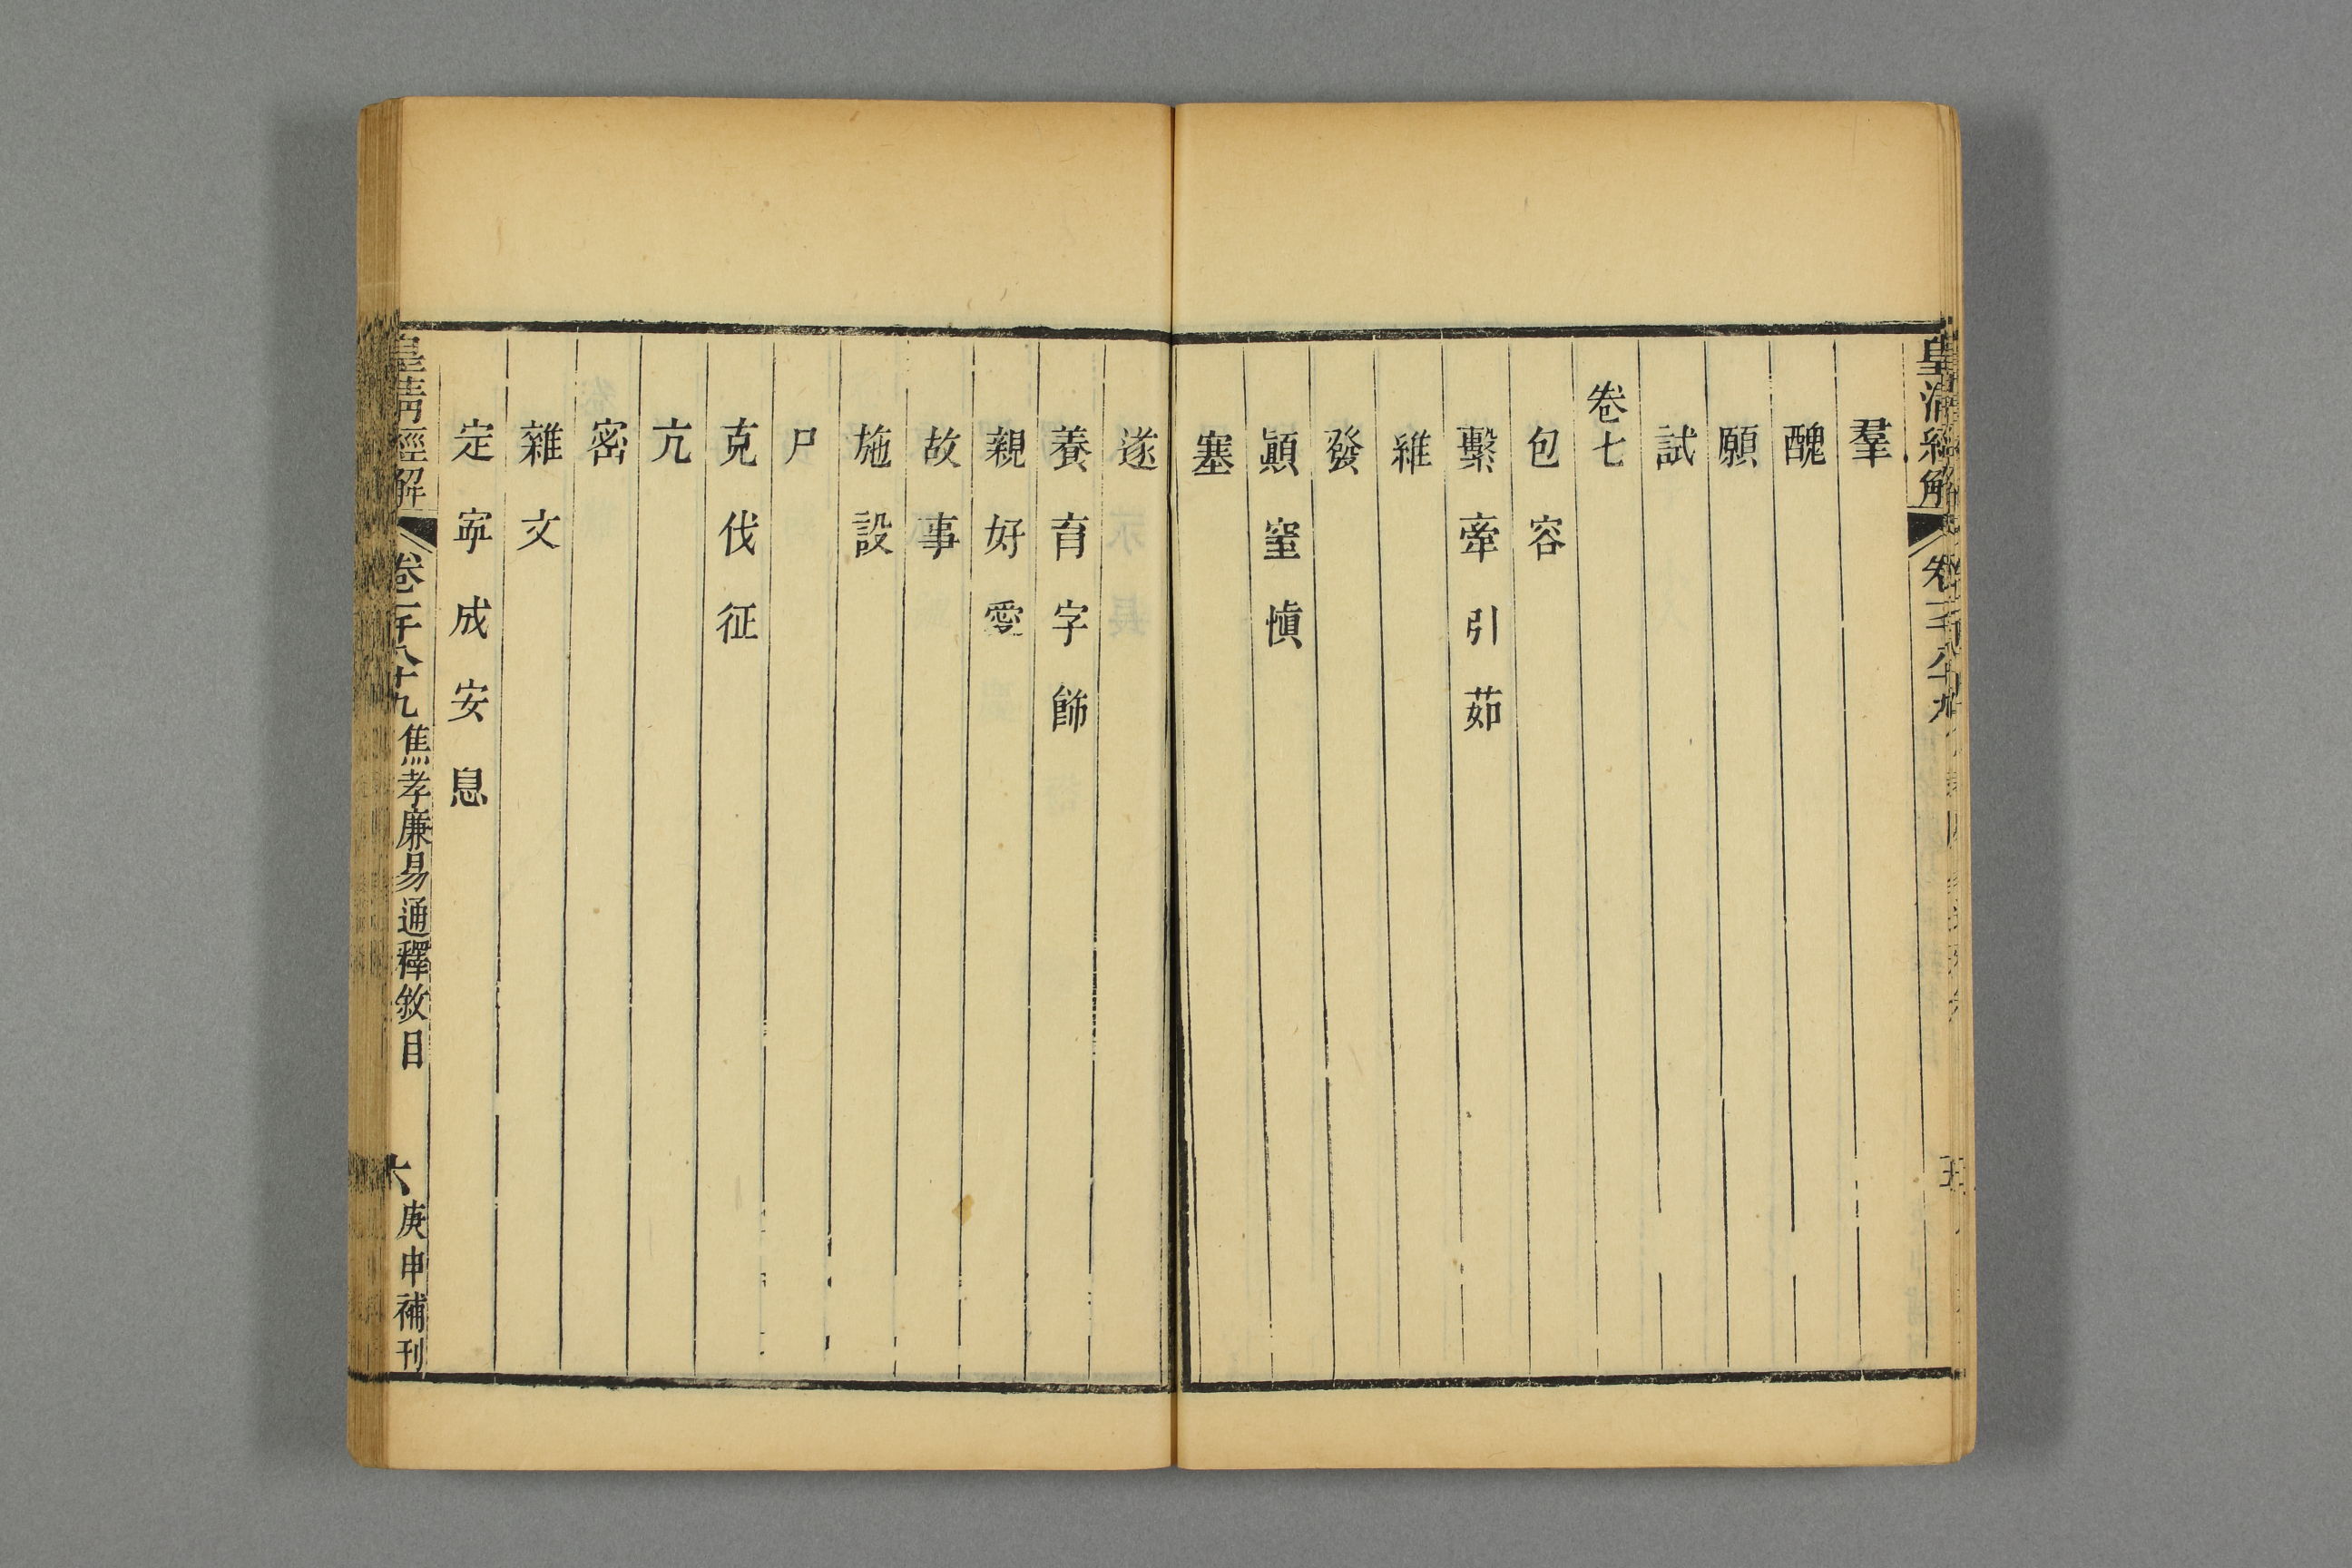 皇清經解 卷一千八十九 五
羣
醜
願
試
卷七
包 容
繫 牽 引 茹
維
發
顚 窒 愼
塞
遂
養 育 字 飾
親 好 愛
故 事
施 設
尸
克 伐 征
亢
密
雜 文
定 寍 成 安 息
皇清經解 卷一千八十九 焦孝廉易通釋敘目 六 庚申補刊